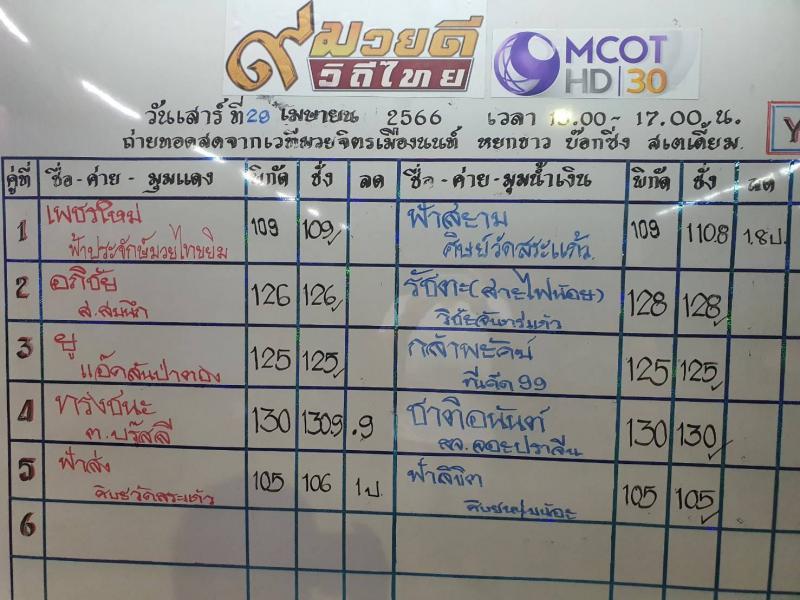 ๙ มวยดี
วิถีไทย
MCOT
HD 30
วันเสาร์ที่ 29 เมษายน 2566 เวลา 15.00 - 17.00 น.
ถ่ายทอดสดจากเวทีมวยจิตรเมืองนนท์ หยกขาว บ๊อกซิ่ง สเตเดี้ยม
คู่ที่ ชื่อ - ค่าย - มุมแดง พิกัด ชั่ง ลด ชื่อ - ค่าย - มุมน้ำเงิน พิกัด ชั่ง ลด
1 เพชรใหม่ 109 109 ฟ้าสยาม 109 110.8 1.8ป.
ฟ้าประจักษ์มวยไทยยิม ศิษย์วัดสระแก้ว
2 อภิชัย 126 126 (สายไฟน้อย) 128 128
ส.สมนึก
3 ยู 125 125 กล้าพยัคฆ์ 125 125
แอ๊ดสันป่าตอง ทีเด็ด 99
4 ทรงชนะ 130 130.9 .9 ชาติอนันต์ 130 130
ต.บรู๊สลี
5 ฟ้าส่ง 105 106 1ป. ฟ้าลิขิต 105 105
ศิษย์วัดสระแก้ว ศิษย์หนุ่มน้อย
6